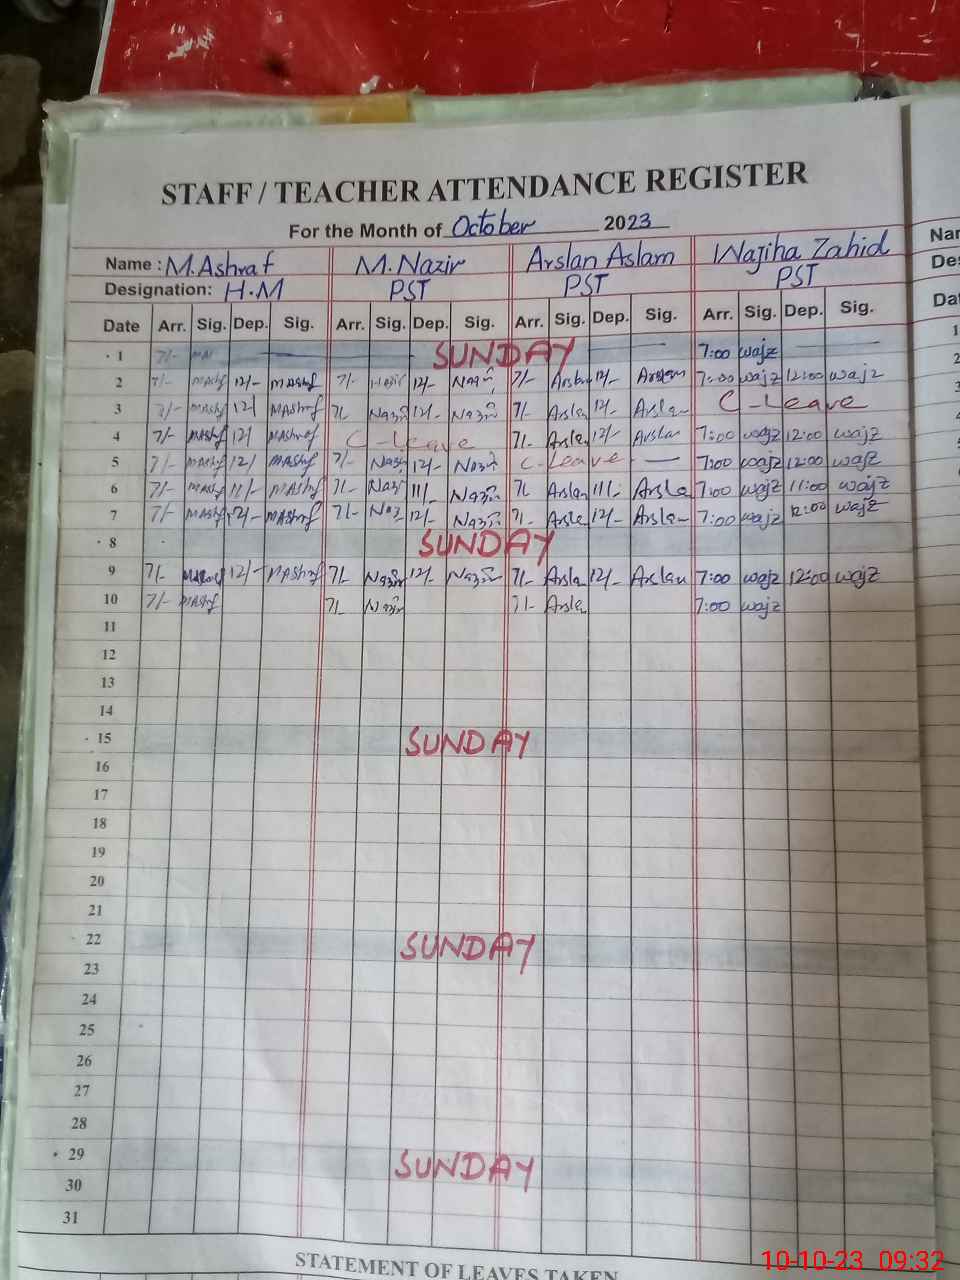 STAFF / TEACHER ATTENDANCE REGISTER
For the Month of October 2023
Name : M.Ashraf M.Nazir Arslan Aslam Wajiha Zahid Nar
Designation: H.M PST PST PST Des
Date Arr. Sig. Dep. Sig. Arr. Sig. Dep. Sig. Arr. Sig. Dep. Sig. Arr. Sig. Dep. Sig. Dat
1 7/- SUNDAY 7:00 wajz
2 7/- MAshf 12/- MAshf 7/- Nazir 12/- Nazir 7/- Arslan 12/- Arslan 7:00 wajz 12:00 wajz
3 7/- MAshf 12/ MAshf 7/ Nazir 12/- Nazir 7/- Arslan 12/- Arslan C-Leave
4 7/- MAshf 12/ MAshraf C-Leave 7/- Arsle 12/- Arslan 7:00 wajz 12:00 wajz
5 7/- MAshf 12/ MAshf 7/- Nazir 12/- Nazir C-Leave 7:00 wajz 12:00 wajz
6 7/- MAshf 11/- MAshf 7/- Nazi 11/- Nazir 7/ Arslan 11/- Arsla 7:00 wajz 11:00 wajz
7 7/- MAshf 12/- MAshraf 7/- Naz 12/- Nazir 7/- Arsle 12/- Arslan 7:00 wajz 12:00 wajz
8 SUNDAY
9 7/- 12/- MAshraf 7/- Nazir 12/- Nazir 7/- Arsla 12/- Arslan 7:00 wajz 12:00 wajz
10 7/- MAshf 7/- Nazir 7/- Arsla 7:00 wajz
11
12
13
14
15 SUNDAY
16
17
18
19
20
21
22 SUNDAY
23
24
25
26
27
28
29 SUNDAY
30
31
STATEMENT OF LEAVES TAKEN
10-10-23 09:32